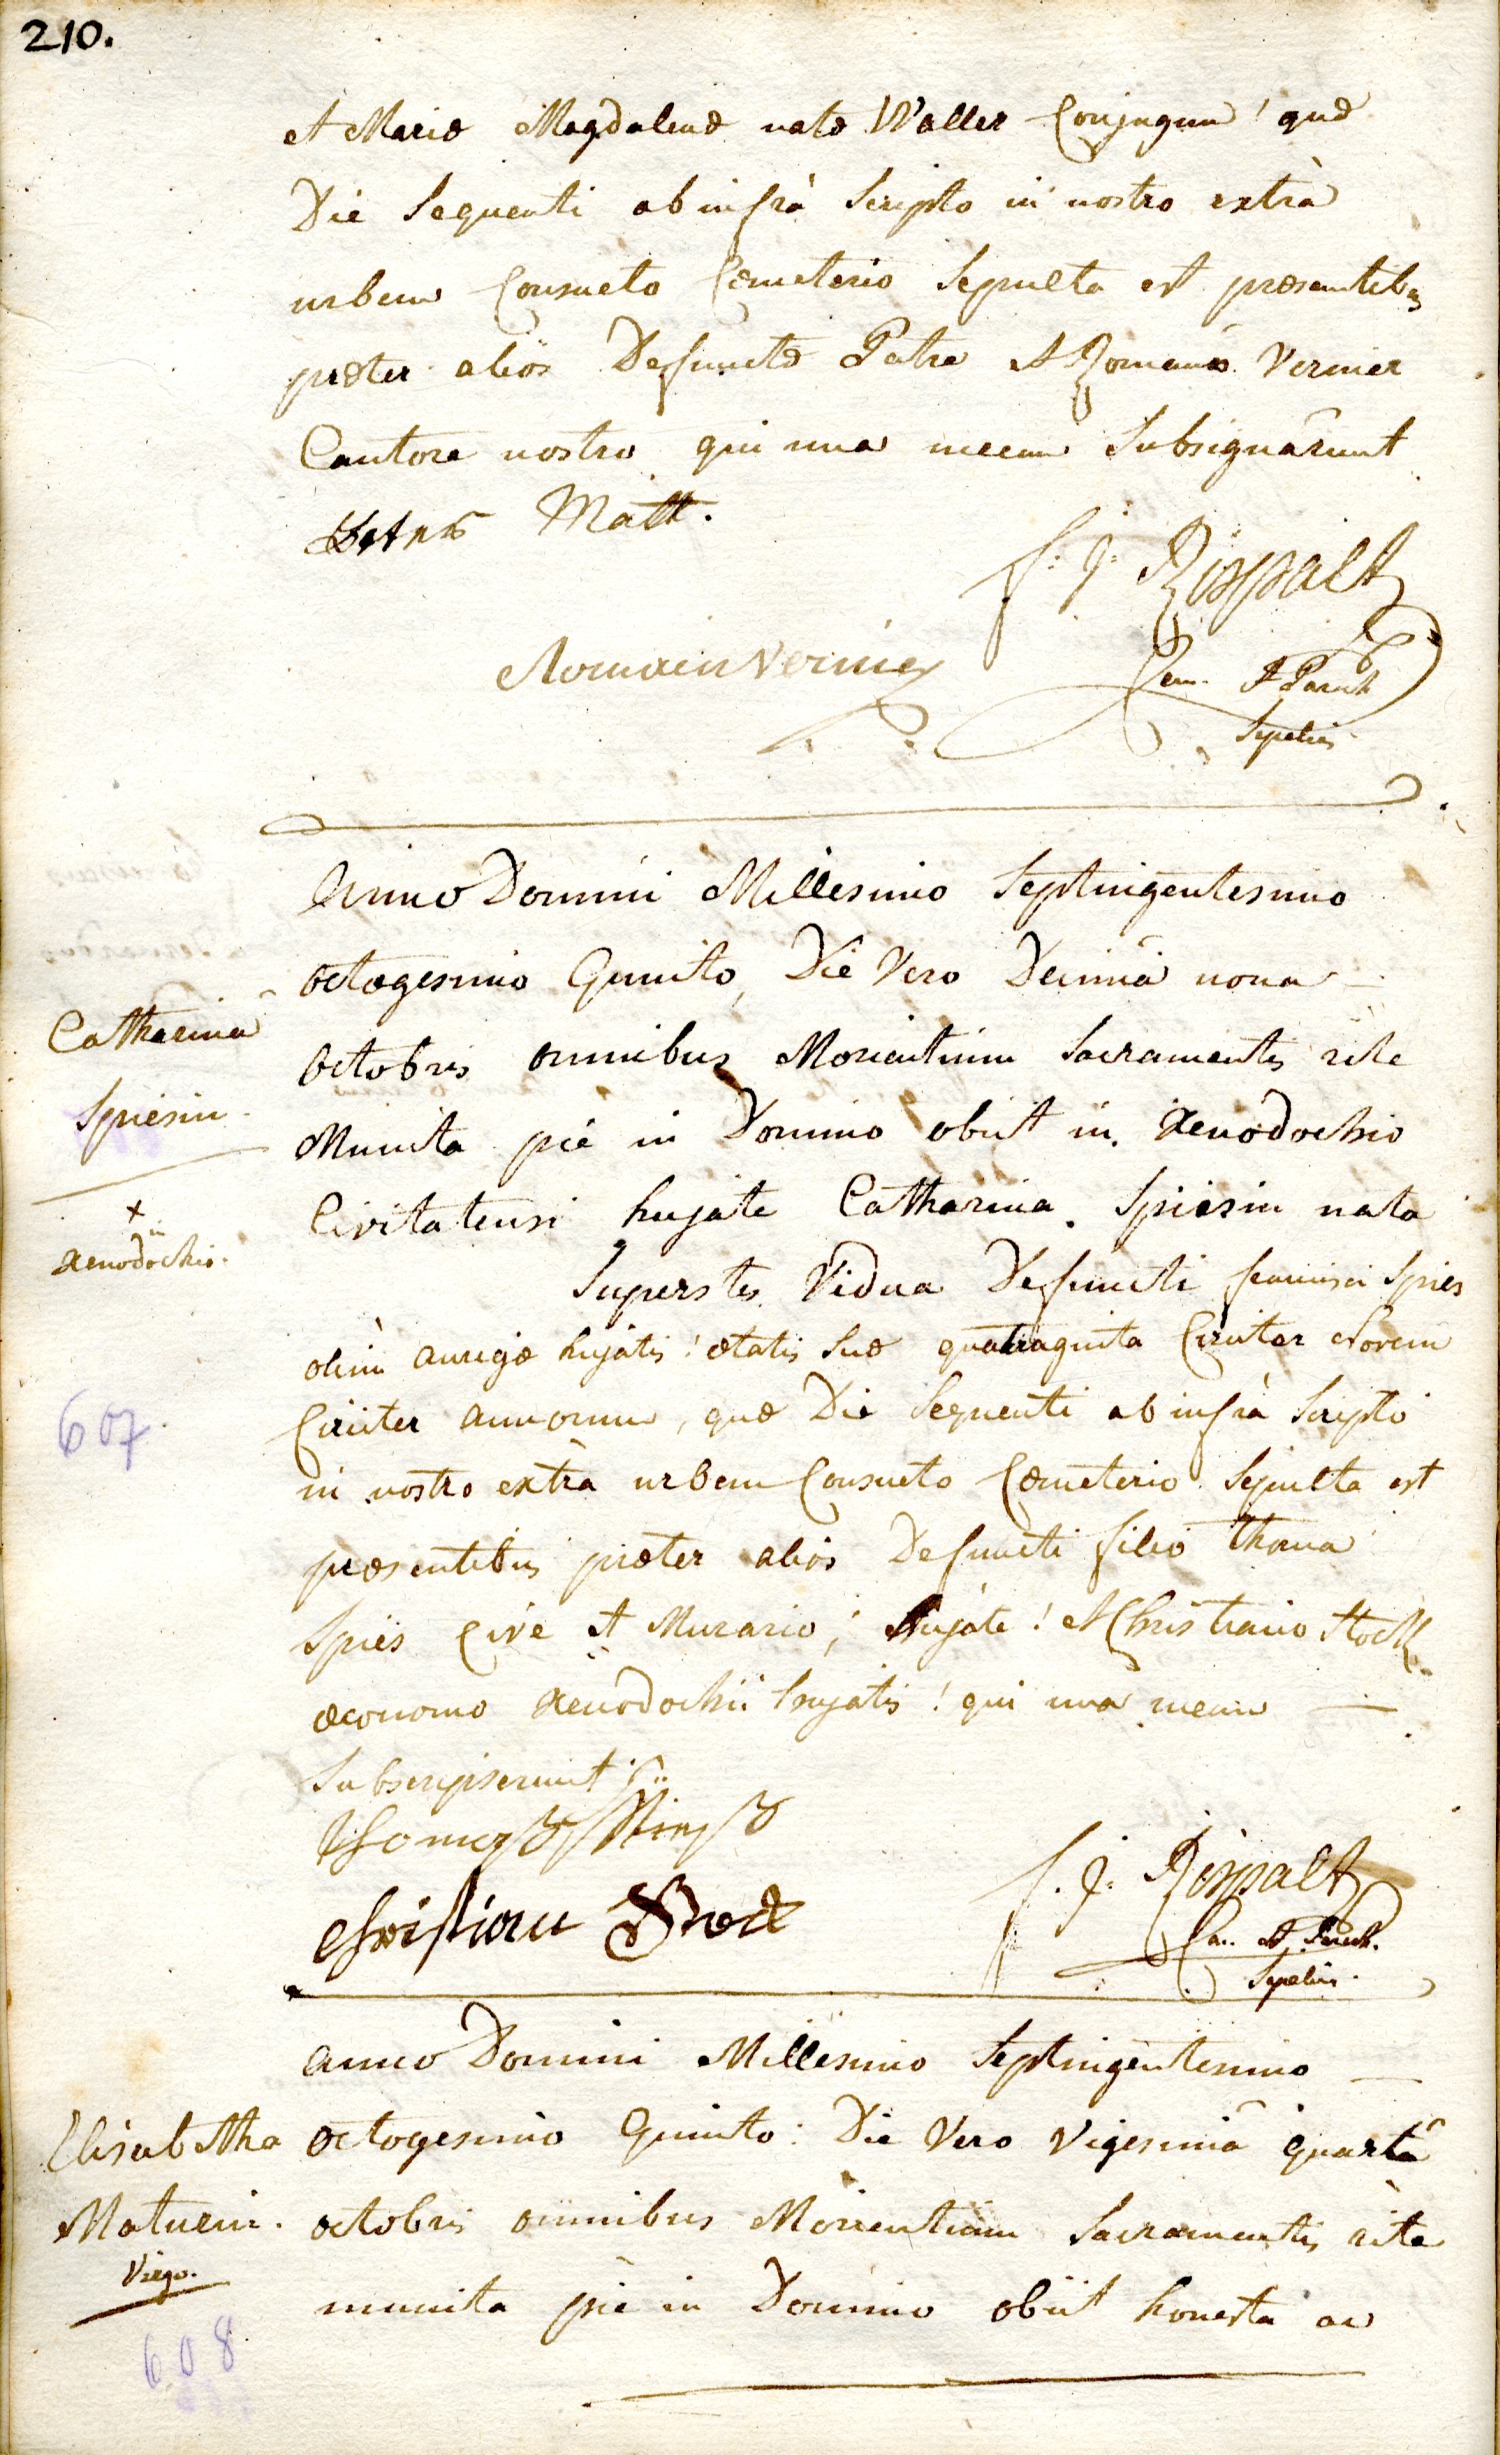 210.
et Mariæ Magdalenæ natæ Waller Conjugum! quæ
Die Sequenti ab infrà Scripto in nostro extrà
urbem Consueto Cœmeterio Sepulta est præsentibus
præter aliòs Defunctæ Patre et Romano Vernier
Cantore nostro qui una mecum Subsignârunt
Matt.
f: J: Rispalt
Romain Vernier
Can. et Paroch
Sepelivi
Anno Domini Millesimo Septingentesimo
octogesimo Quinto, Die Vero Decimâ nona
Octobris omnibus Morientium Sacramentis rite
Munita pie in Domino obiit in Xenodochio
Civitatensi hujate Catharina Spiesin nata
Superstes Vidua Defuncti francisci Spies
olim aurigæ hujatis! ætatis Suæ quadraginta Circiter Novem
Circiter annorum, quæ Die Sequenti ab infrà Scripto
in nostro extrà urbem Consueto Cœmeterio Sepulta est
præsentibus præter aliòs Defuncti filio Thoma
Spies Cive et Murario, hujate! et Christiano Stock
œconomo Xenodochii hujatis! qui unà mecum
Subscripserunt
Christian Stock
f. J: Rispalt
Can. et Paroch.
Sepelivi.
Catharina
Spiesin
+
in
Xenodochio.
607
anno Domini Millesimo Septingentesimo
octogesimo Quinto: Die Vero Vigesimâ quartâ
octobris omnibus Morientium Sacramentis rite
munita piè in Domino obiit honesta ac
Elisabetha
Maturin.
Virgo.
608